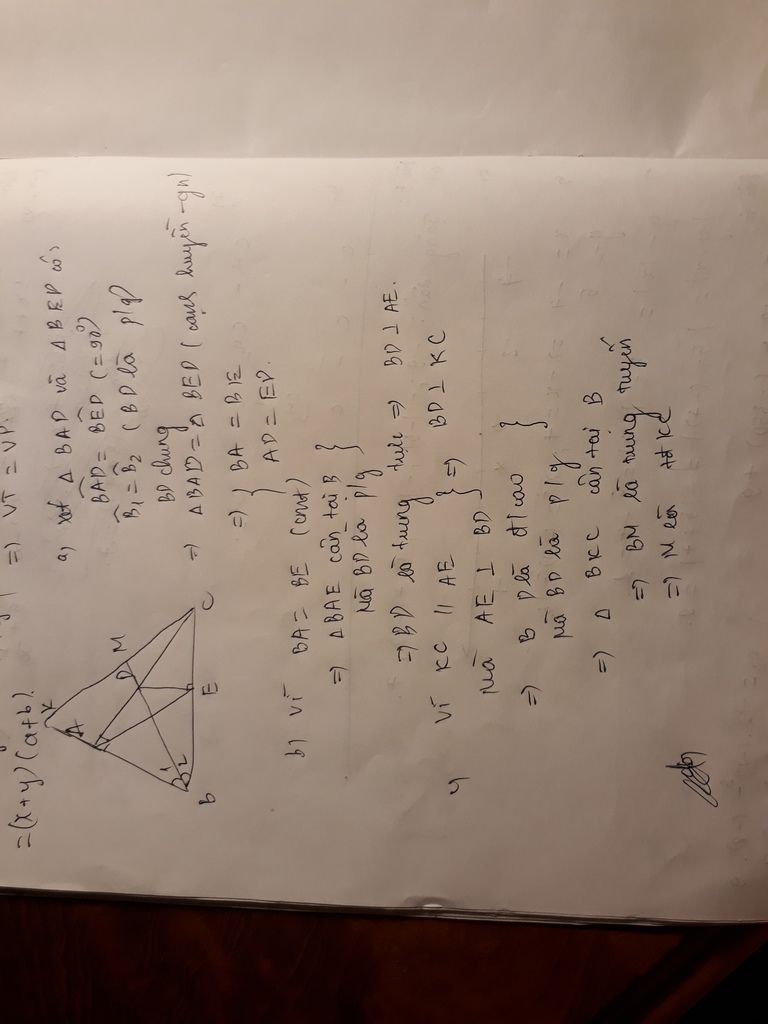 => VT = VP.
= (x+y)(a+b).
K
A
D
M
B
1
2
E
C
a) xét Δ BAD và Δ BED có:
BAD = BED (= 90°)
B1 = B2 (BD là p/g)
BD chung
=> ΔBAD = Δ BED (cạnh huyền - gn)
=> { BA = BE
AD = ED.
b) Vì BA = BE (cmt)
=> ΔBAE cân tại B
Mà BD là p/g }
=> BD là trung trực => BD ⊥ AE.
Vì KC // AE
Mà AE ⊥ BD } => BD ⊥ KC
=> BD là đ/cao
Mà BD là p/g }
=> Δ BKC cân tại B
=> BM là trung tuyến
=> M là tđ KC